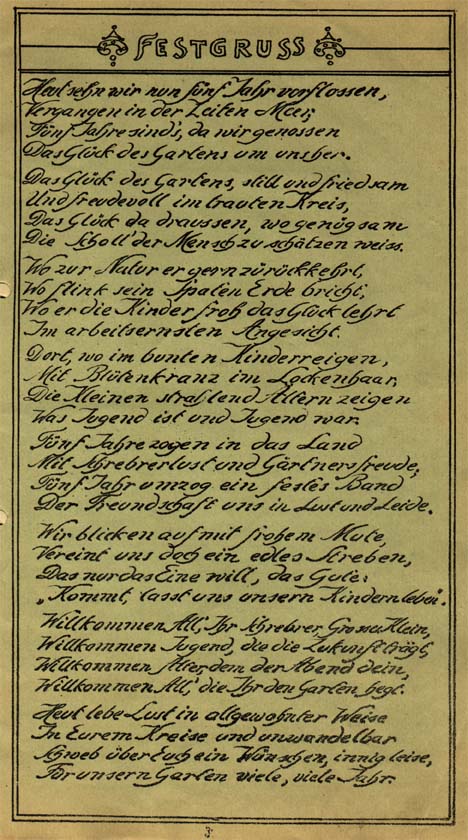 FESTGRUSS
Heut sehn wir nun fünf Jahr verflossen,
Vergangen in der Zeiten Meer,
Fünf Jahre sind's, da wir genossen
Das Glück des Gartens um uns her.
Das Glück des Gartens, still und friedsam
Und freudevoll im trauten Kreis,
Das Glück da draussen, wo genügsam
Die Scholl' der Mensch zu schätzen weiss.
Wo zur Natur er gern zurückkehrt,
Wo flink sein Spaten Erde bricht,
Wo er die Kinder froh das Glück lehrt
Im arbeitsernsten Angesicht.
Dort, wo im bunten Kinderreigen,
Mit Blütenkranz im Lockenhaar,
Die Kleinen strahlend Altern zeigen
Was Jugend ist und Jugend war.
Fünf Jahre zogen in das Land
Mit Schrebrerlust und Gärtnersfreude,
Fünf Jahr umzog ein festes Band
Der Freundschaft uns in Lust und Leide.
Wir blicken auf mit frohem Mute,
Vereint uns doch ein edles Streben,
Das nur das Eine will, das Gute:
„Kommt, lasst uns unsern Kindern leben".
Willkommen All', Ihr Schrebrer, Gross u. Klein,
Willkommen Jugend, die die Zukunft trägt,
Willkommen Alter, dem der Abend dein,
Willkommen All', die Ihr den Garten hegt.
Heut lebe Lust in altgewohnter Weise
In Eurem Kreise und unwandelbar
Schweb über Euch ein Wünschen, innig leise,
Für unsern Garten viele, viele Jahr.
3